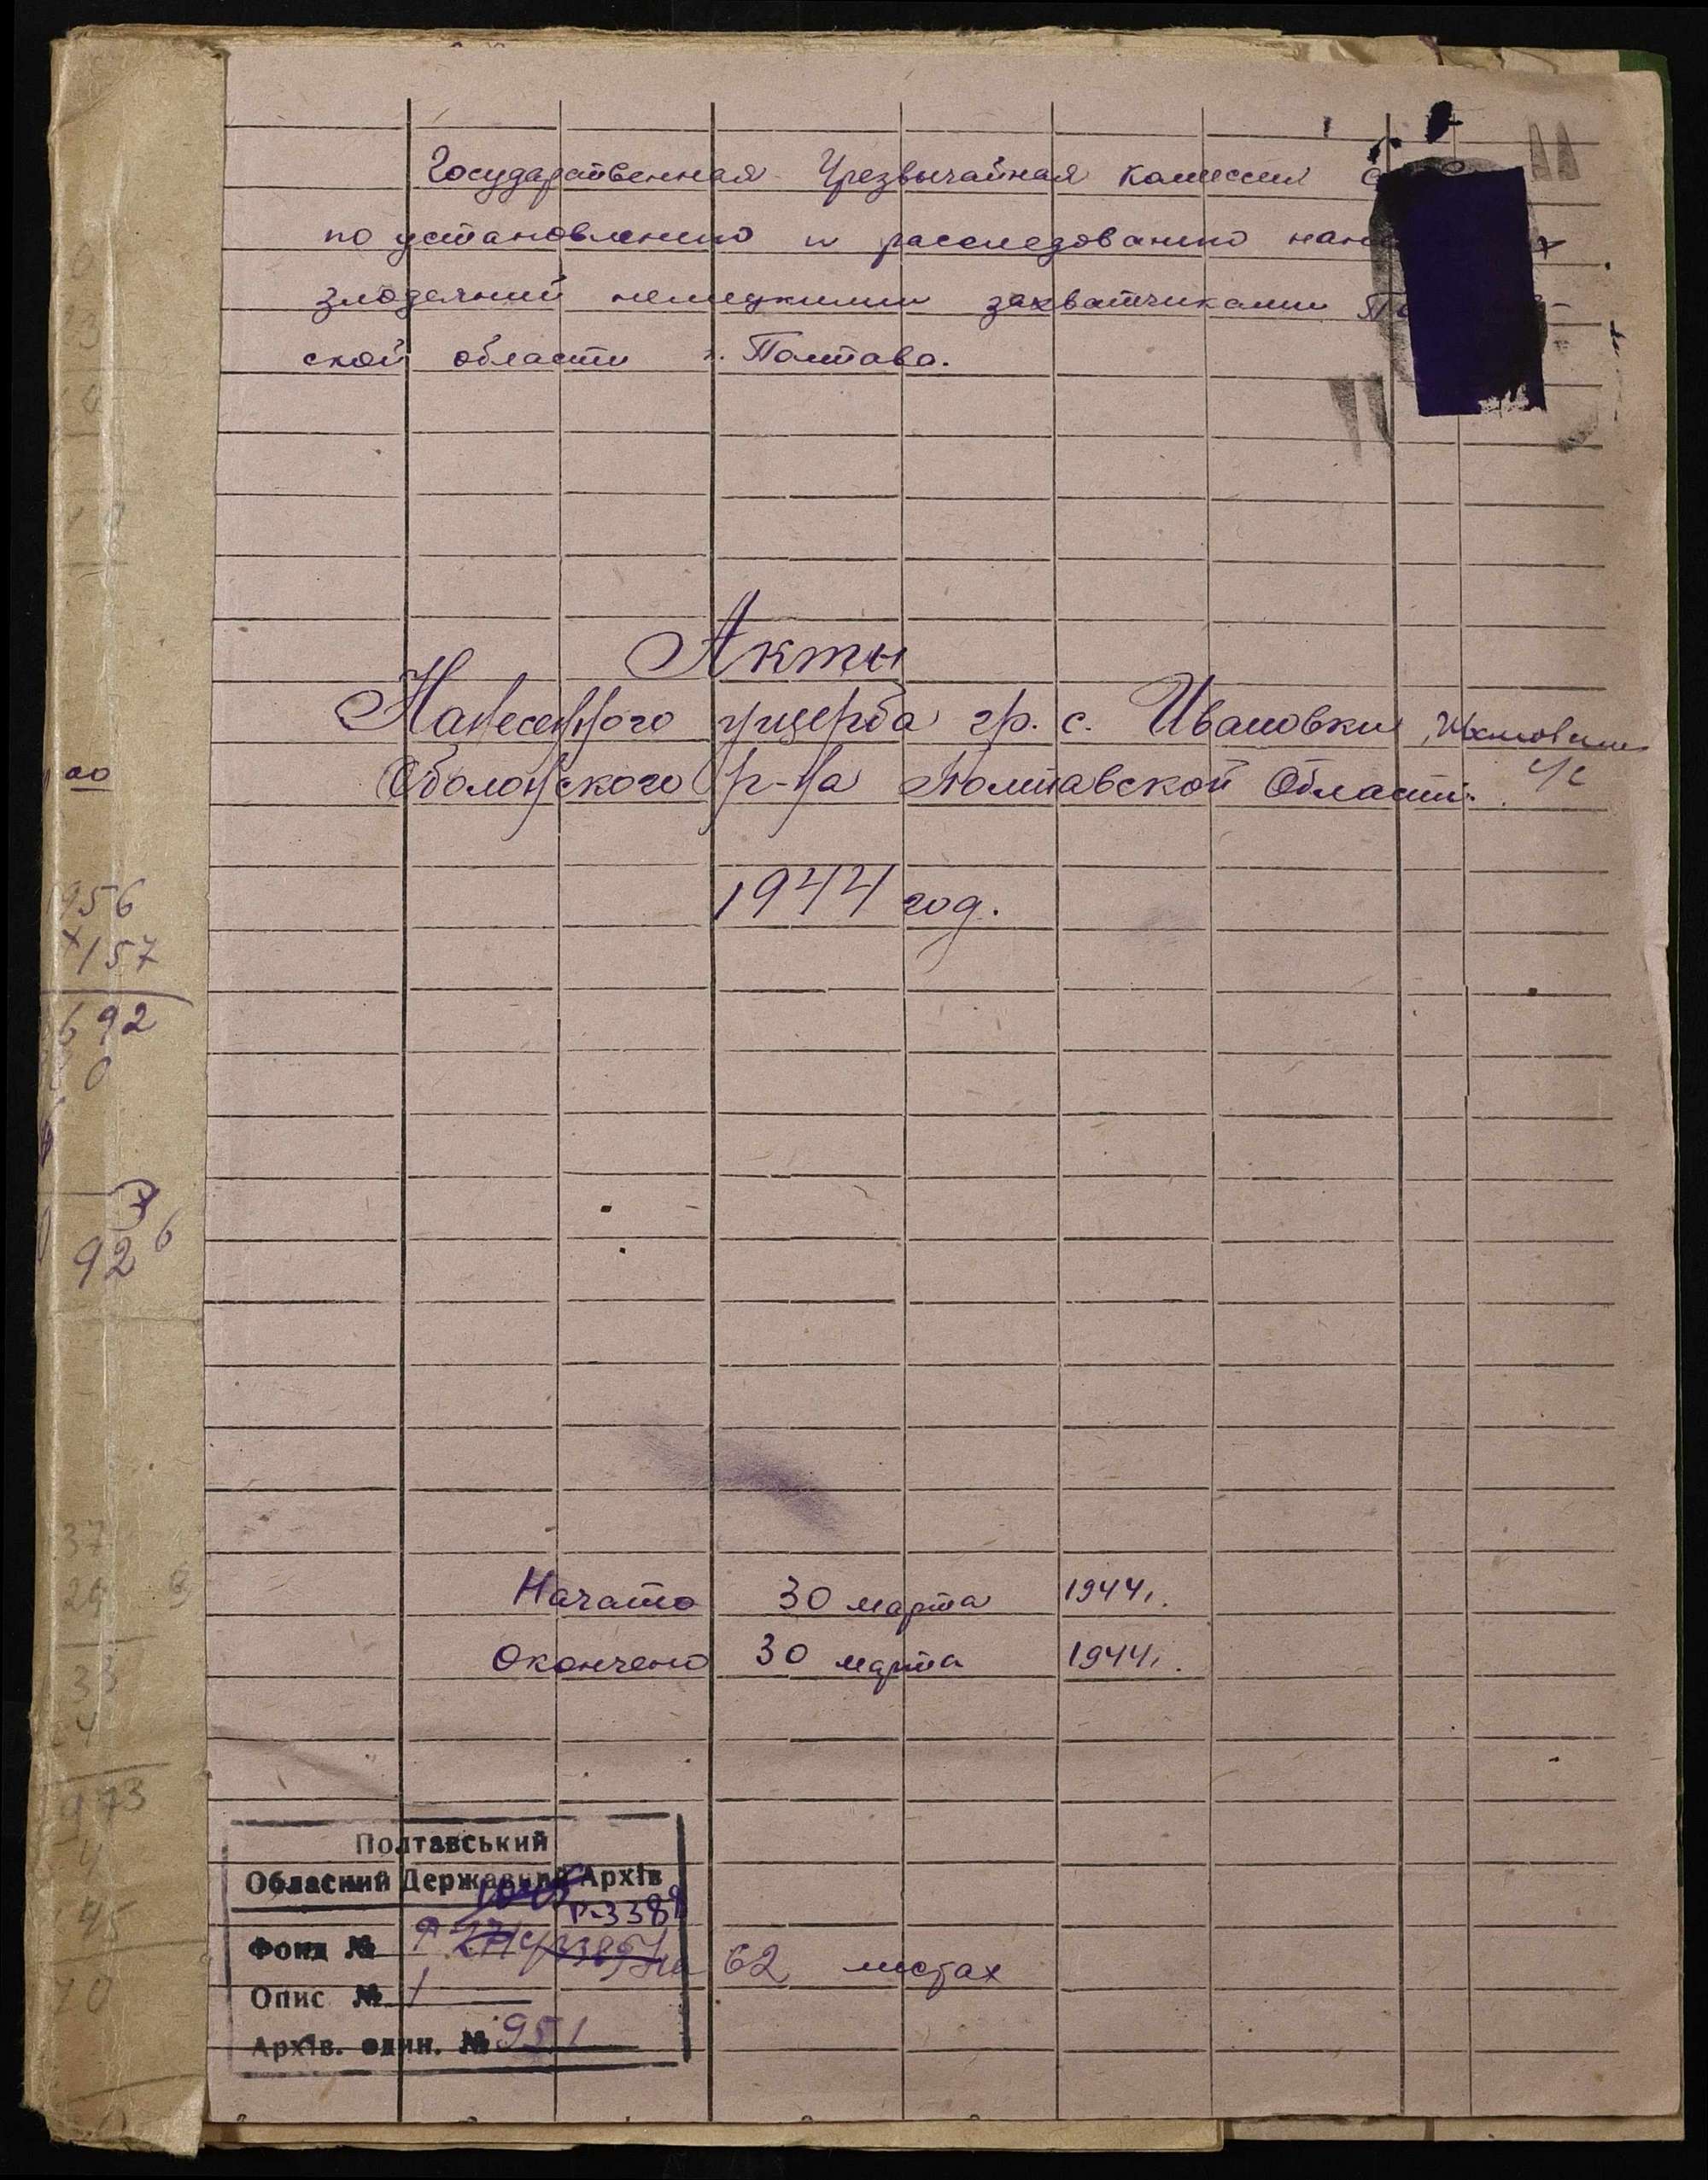 Государственная Чрезвычайная Комиссия
по установлению и расследованию
злодеяний немецкими захватчиками
ской области г. Полтава.
Акты
Нанесенного ущерба гр. с. Ивановки
Оболонского р-на Полтавской Области.
с/с
1944 год.
Начато 30 марта 1944г.
Окончено 30 марта 1944г.
Полтавський
Обласний Державний Архів
Р-3388
Фонд №
на 62 листах
Опис № 1
Архів. один. № 951
956
×157
692
0
92
6
37
33
973
4
45